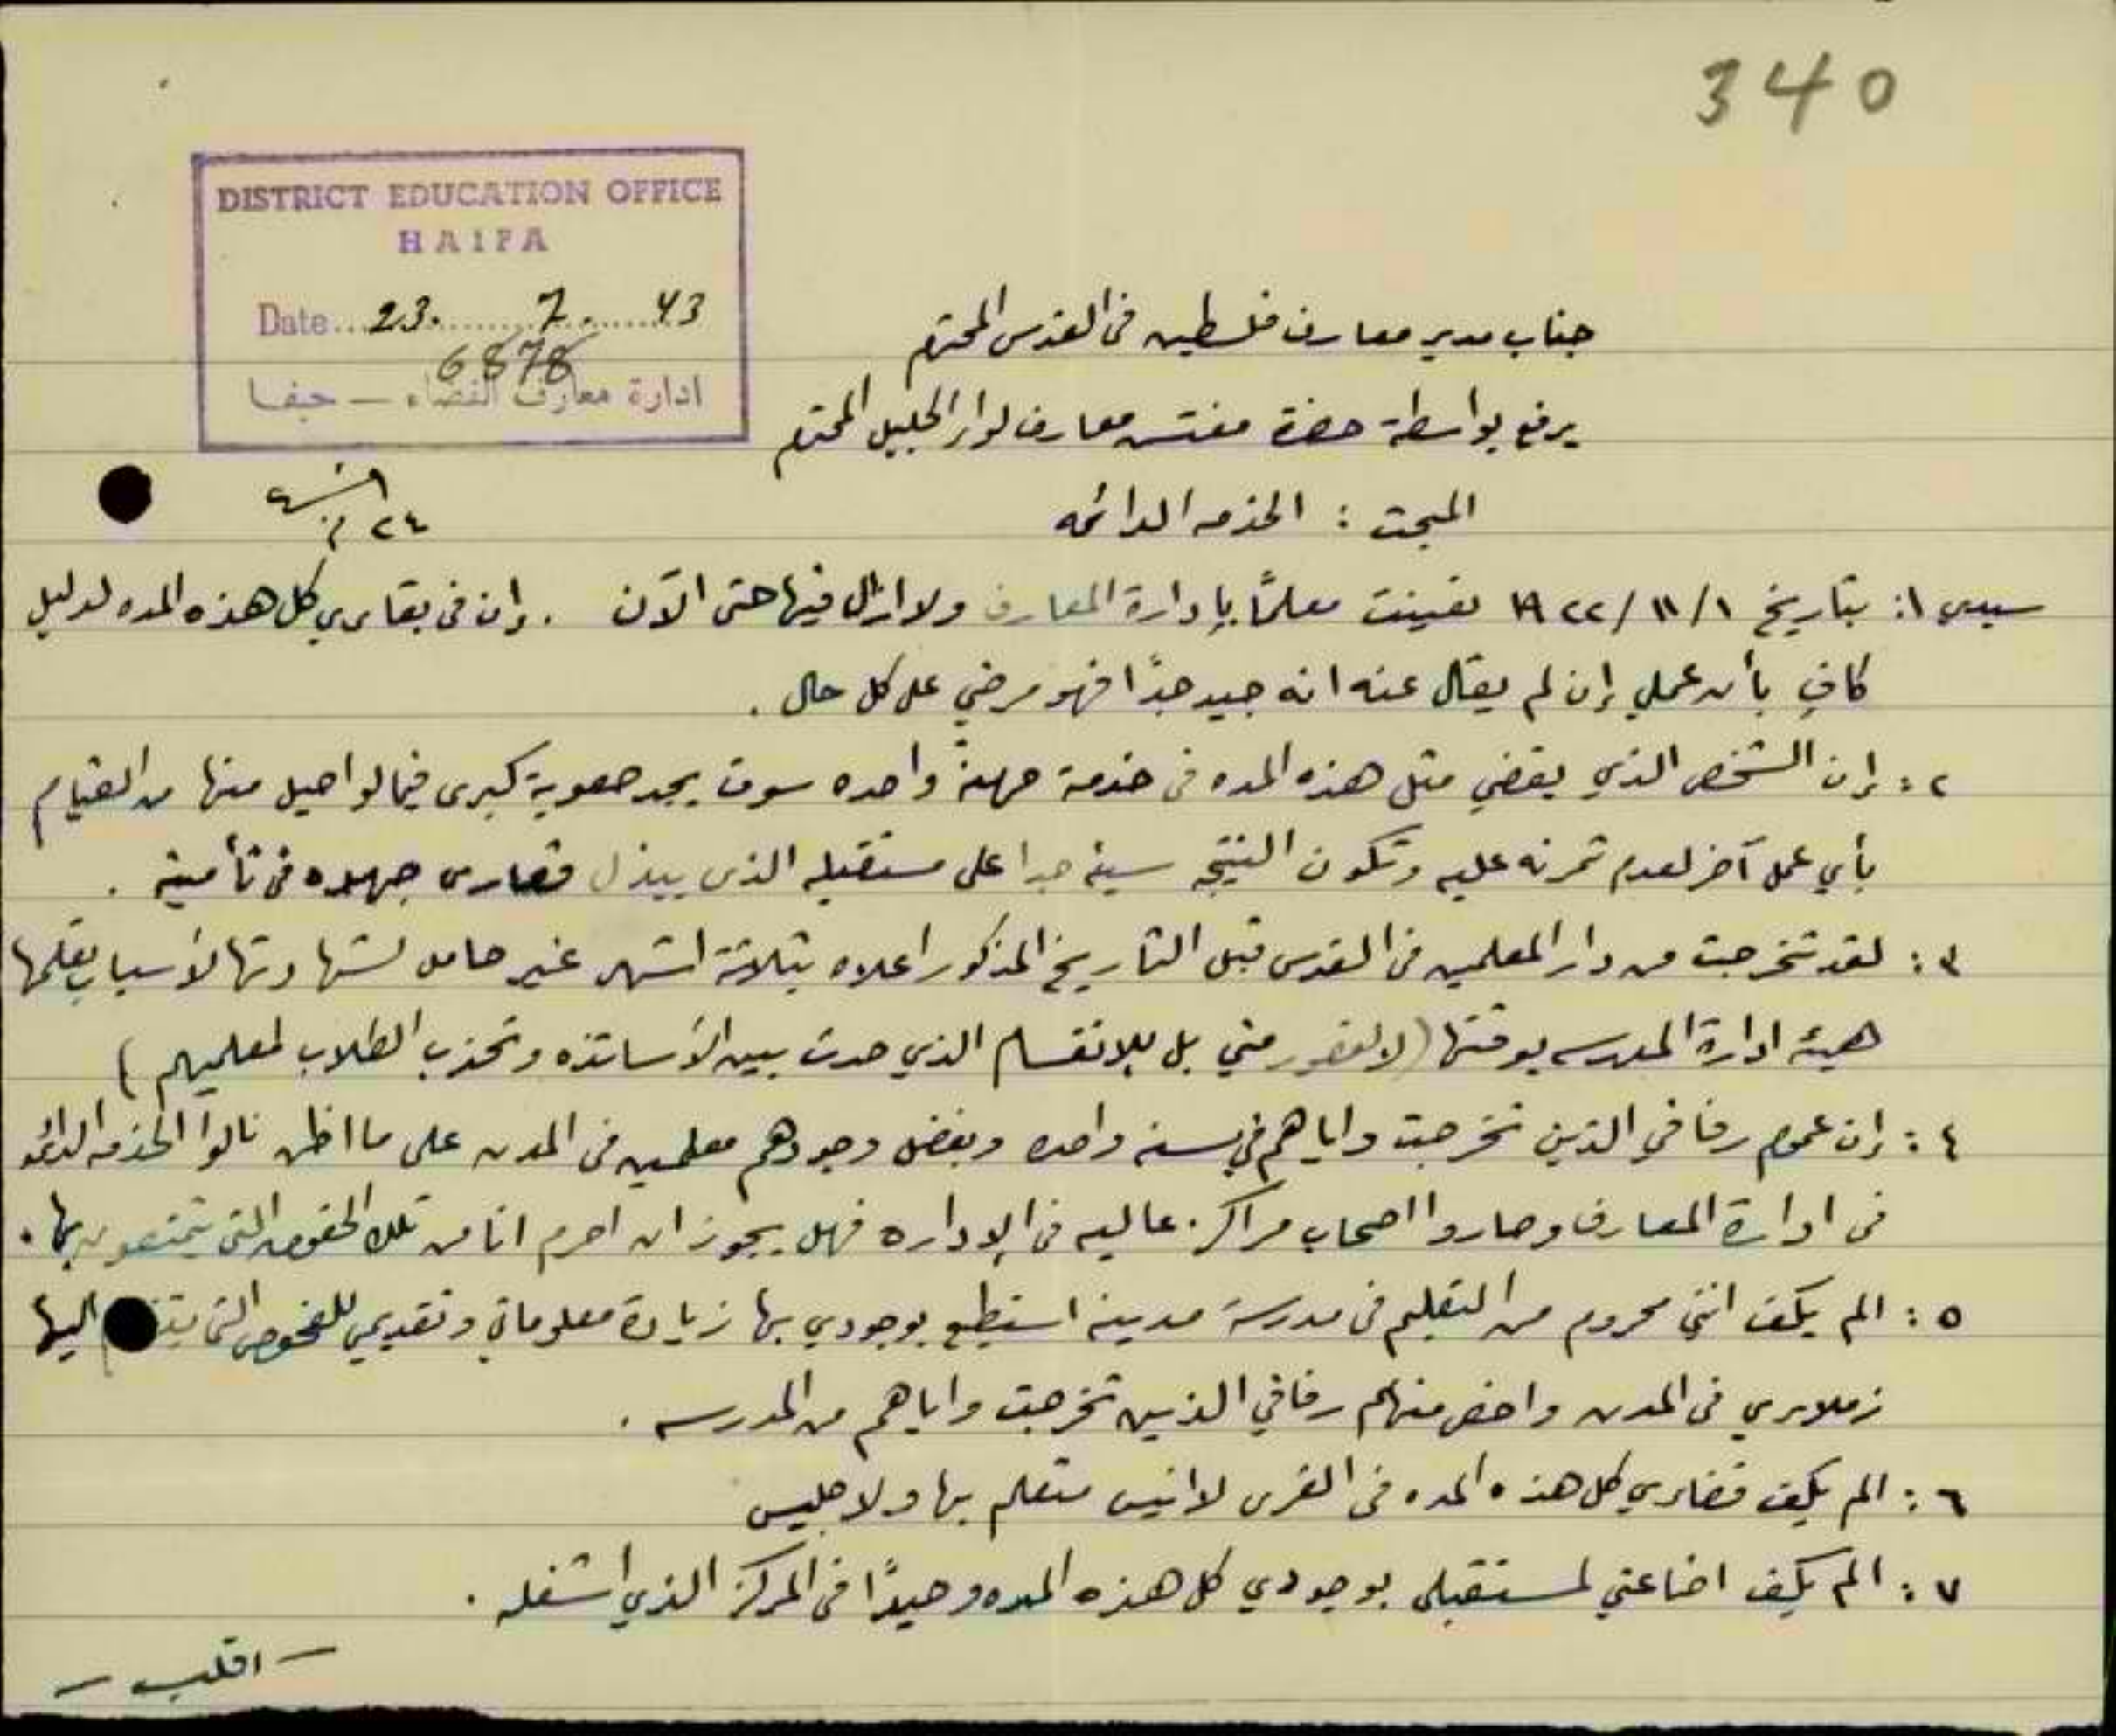 340
DISTRICT EDUCATION OFFICE
HAIFA
Date...23.......7.......43
6878
ادارة معارف القضاء — حيفا
جناب مدير معارف فلسطين في القدس المحترم
يرفع بواسطة حضرة مفتش معارف لواء الجليل المحترم
المبحث : الخدمه الدائمه
٢٤
سيدي ١: بتاريخ ١/١١/١٩٢٢ تعينت معلمًا بإدارة المعارف ولا ازال فيها حتى الآن . وإن في بقاءي كل هذه المده لدليل
كافٍ بأن عملي إن لم يقال عنه انه جيد جدًا فهو مرضي على كل حال .
٢ : إن الشخص الذي يقضي مثل هذه المده في خدمة مهنة واحده سوف يجد صعوبة كبرى فيما لو احيل منها من القيام
بأي عمل آخر لعدم تمرنه عليه وتكون النتيجه سيئه جدا على مستقبله الذي يبذل قصارى جهده في تأمينه .
٣ : لقد تخرجت من دار المعلمين في القدس قبل التاريخ المذكور اعلاه بثلاثة اشهر غير حامل لشهادتها لأسباب تعلمها
هيئة ادارة المدرسه بوقتها (لا لقصور مني بل للانقسام الذي حدث بين الأساتذه وتحزب الطلاب لمعلميهم)
٤ : إن عموم رفاقي الذين تخرجت واياهم في سنه واحده وبفضل وجودهم معلمين في المدن على ما اظن نالوا الخدمه الدائمه
في ادارة المعارف وصاروا اصحاب مراكز عاليه في الإداره فهل يجوز ان احرم انا من تلك الحقوق التي يتمتعون بها .
٥ : الم يكف انني محروم من التعليم في مدرسة مدينه استطيع بوجودي بها زيادة معلوماتي وتقديمي للفحوص التي اليها
زملاءي في المدن واخص منهم رفاقي الذين تخرجت واياهم من المدرسه .
٦ : الم يكف قضاءي كل هذه المده في القرى لا انيس متعلم بها ولا جليس
٧ : الم يكف اضاعتي لمستقبلي بوجودي كل هذه المده وحيدًا في المركز الذي اشغله .
— اقلب —